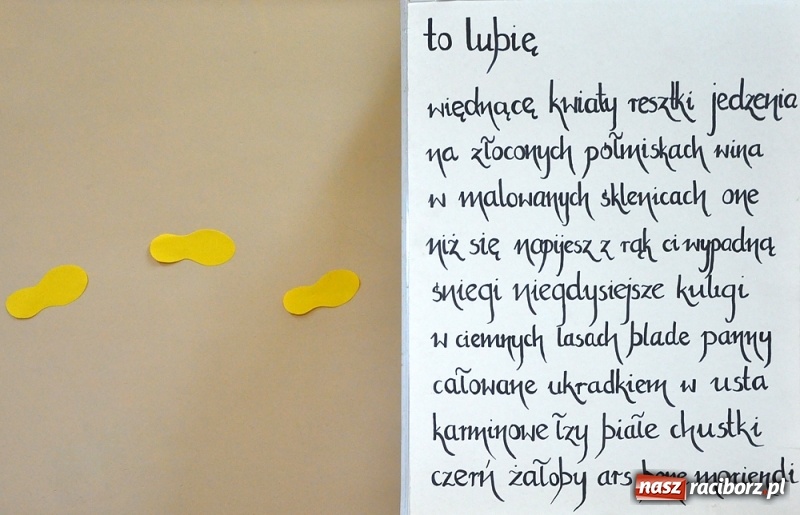 to lubię
więdnącę kwiaty resztki jedzenia
na złoconych półmiskach wina
w malowanych sklenicach one
niż się napijesz z rąk ci wypadną
śniegi niegdysiejsze kuligi
w ciemnych lasach blade panny
całowane ukradkiem w usta
karminowe łzy białe chustki
czerń żałoby ars bene moriendi
nasz raciborz.pl